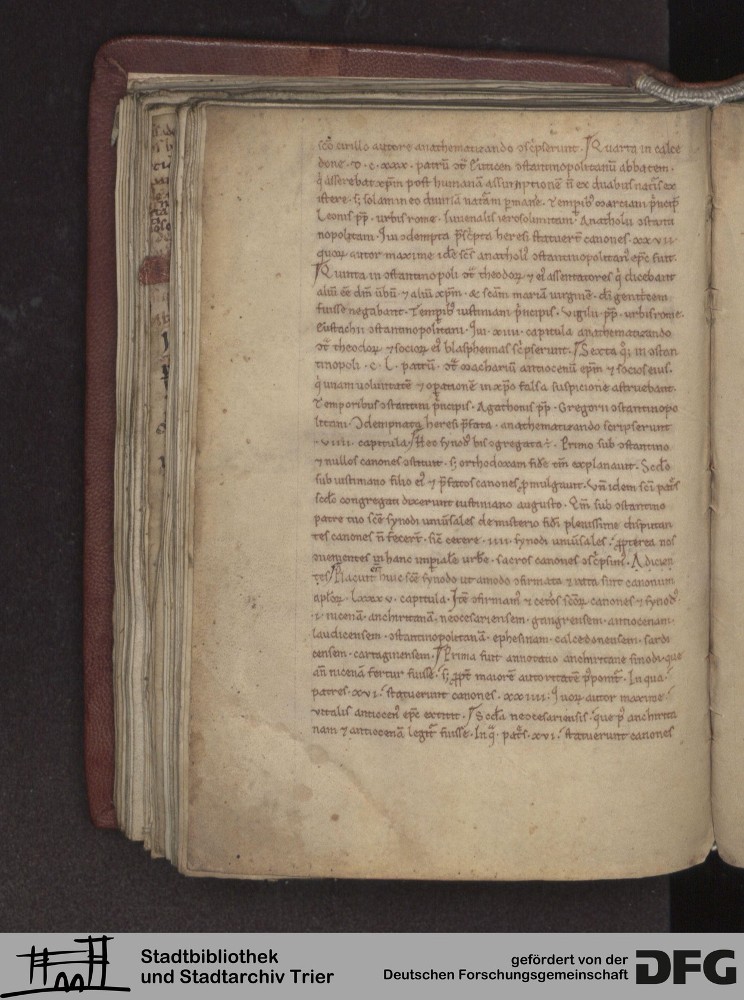 sc̄o cirillo autore anathematizando ɔsc̄pserunt. Quarta in calce
done. d. c. xxx. patrū ɔt̄ euticen ɔstantinopolitanū abbatem.
q̇ asserebat xp̄m post humanā assumptionē n̄ ex duabus naturis ex
istere. s; solam in eo diuinā naturam p̄manē. Temporib; Marciani p̄ncip̄
Leonis pp̄. urbis rome. Iuuenalis ierosolimitani. Anatholii ɔstanti
nopolitani. Qui ɔdempta p̄sc̄pta heresi statuert̄ canones. xx vii.
quoꝝ autor maxime idē sc̄s anatholi9 ɔstantinopolitan9 ep̄c fuit.
Quinta in ɔstantinopoli ɔt̄ theodoꝝ ⁊ ei9 assentatores q̇ dicebant
aliū eē dm̄ ūbū ⁊ aliū xp̄m. & sc̄am mariā uirginē. di genitricem
fuisse negabant. Temporib; iustiniani p̄ncipis. Vigilii pp̄. urbis rome.
Eustachii ɔstantinopolitani. Qui. xiiii. capitula anathematizando
ɔt̄ theodoꝝ ⁊ socioꝝ ei9 blasphemias sc̄pserunt. Sexta q̇ in ɔstan
tinopoli. c. l. patrū. ɔt̄ machariū antiocenū ep̄m ⁊ socios eius.
q̇ unam uoluntatē ⁊ opationē in xp̄o falsa suspicione astruebant.
Temporibus ɔstantini p̄ncipis. Agathonis pp̄. Gregorii ɔstantinopo
litani. Ɔdempnata heresi p̄fata. anathematizando scripserunt
.viiii. capitula. Hec synod9 bis ɔgregata ÷. Primo sub ɔstantino
⁊ nullos canones ɔstituit. s; orthodoxam fidē tm̄ explanauit. Scd̄o
sub iustiniano filio ei9 ⁊ p̄fatos canones p̄mulgauit. Vn̄ idem sc̄i pat̄s
scd̄o congregati dixerunt iustiniano augusto. Qm̄ sub ɔstantino
patre tuo sc̄e synodi uniūsales de misterio fidi plenissime disputan
tes canones n̄ fecert̄. sic̄ cetere. iiii. synodi uniūsales. ꝓpterea nos
ɔuenientes in hanc imp̄ialē urbē. sacros canones ɔsc̄psim9. Adicien
tes. Placuit huic sc̄e synodo ut amodo ɔfirmata ⁊ rata sint canonum
apl̄oꝝ. lxxx v. capitula. Itē ɔfirmam9 ⁊ cet̄os sc̄oꝝ canones ⁊ synod9
.i. nicenā. anchiritanā. neocesariensem. gangrensem. antiocenam.
laudicensem. ɔstantinopolitanā. ephesinam. calcedonensem. sardi
censem. cartaginensem. Prima fuit annotatio anchiritane sinodi. que
an̄ nicenā fertur fuisse. s; ꝓpt̄ maiorē autoritatē p̄ponit̄. In qua
patres. xvi. statuerunt canones. xx iiii. Quoꝝ autor maxime
uitalis antiocen9 ep̄c extitit. Scd̄a neocesariensis. que p9 anchirita
nam ⁊ antiocenā legit̄ fuisse. In q̄. pat̄s. xvi. statuerunt canones
Stadtbibliothek
und Stadtarchiv Trier
gefördert von der
Deutschen Forschungsgemeinschaft
DFG